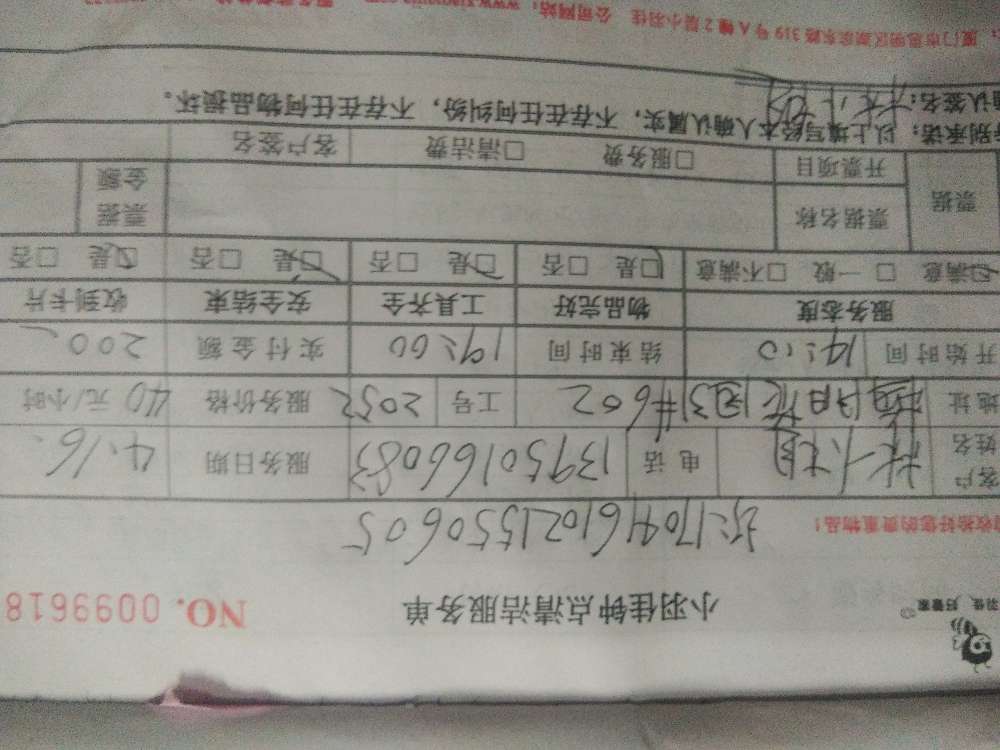 羽佳，好管家
小羽佳钟点清洁服务单 NO. 0099618
收拾好您的贵重物品！
170416102155060605
客户姓名 林小姐 电话 13950166083 服务日期 4.16.
地址 #602 工号 2052 服务价格 40 元/小时
开始时间 14:10 结束时间 19:00 实付金额 200
服务态度 物品完好 工具齐全 安全结束 收到卡片
□满意 □一般 □不满意 □是 □否 □是 □否 □是 □否 □是 □否
票据 票据名称 票据金额
开票项目 □服务费 □清洁费 客户签名
别承诺：以上填写经本人确认属实，不存在任何纠纷，不存在任何物品损坏。
确认签名：林小姐
厦门市思明区湖滨东路 319 号 A 幢 2 层小羽佳 公司网站：www.